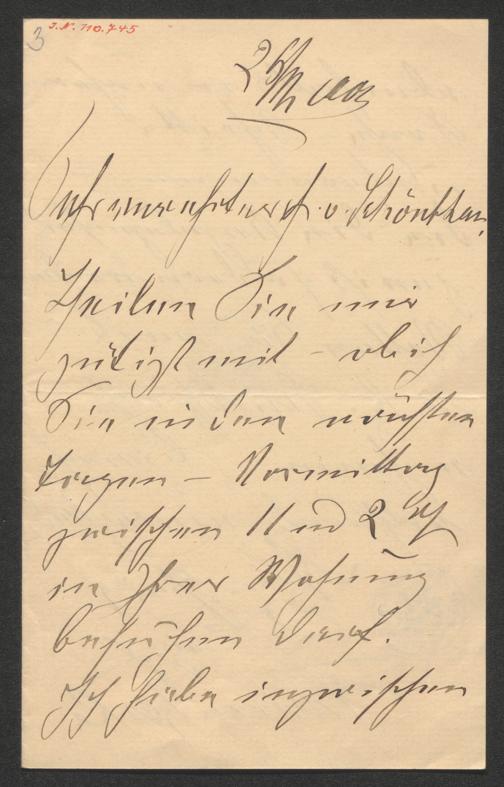 3
I.N. 110.745
Sehr verehrter H. v. Schönthan,
Theilen Sie mir
gütigst mit – ob ich
Sie in den nächsten
Tagen – Vormittag
zwischen 11 und 2 U
in Ihrer Wohnung
besuchen darf.
Ich habe inzwischen